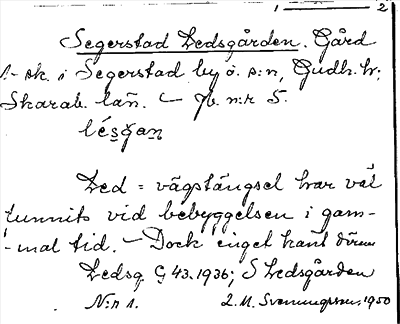 1 2
Segerstad Ledsgården. Gård
1- sk. i Segerstad by o. s:n, Gudh. hr;
Skarab. län. — Jb. n:r 5.
léșg̣aṇ
Led = vägstängsel har väl
funnits vid bebyggelsen i gam-
mal tid. — Dock inget känt
Ledsg. G 43. 1936; S Ledsgården
N:r 1. 2. M. Svenningsson, 1950